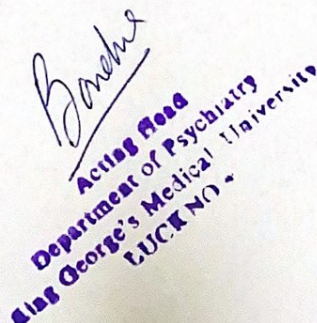 Acting Head
Department of Psychiatry
King George's Medical University
LUCKNO